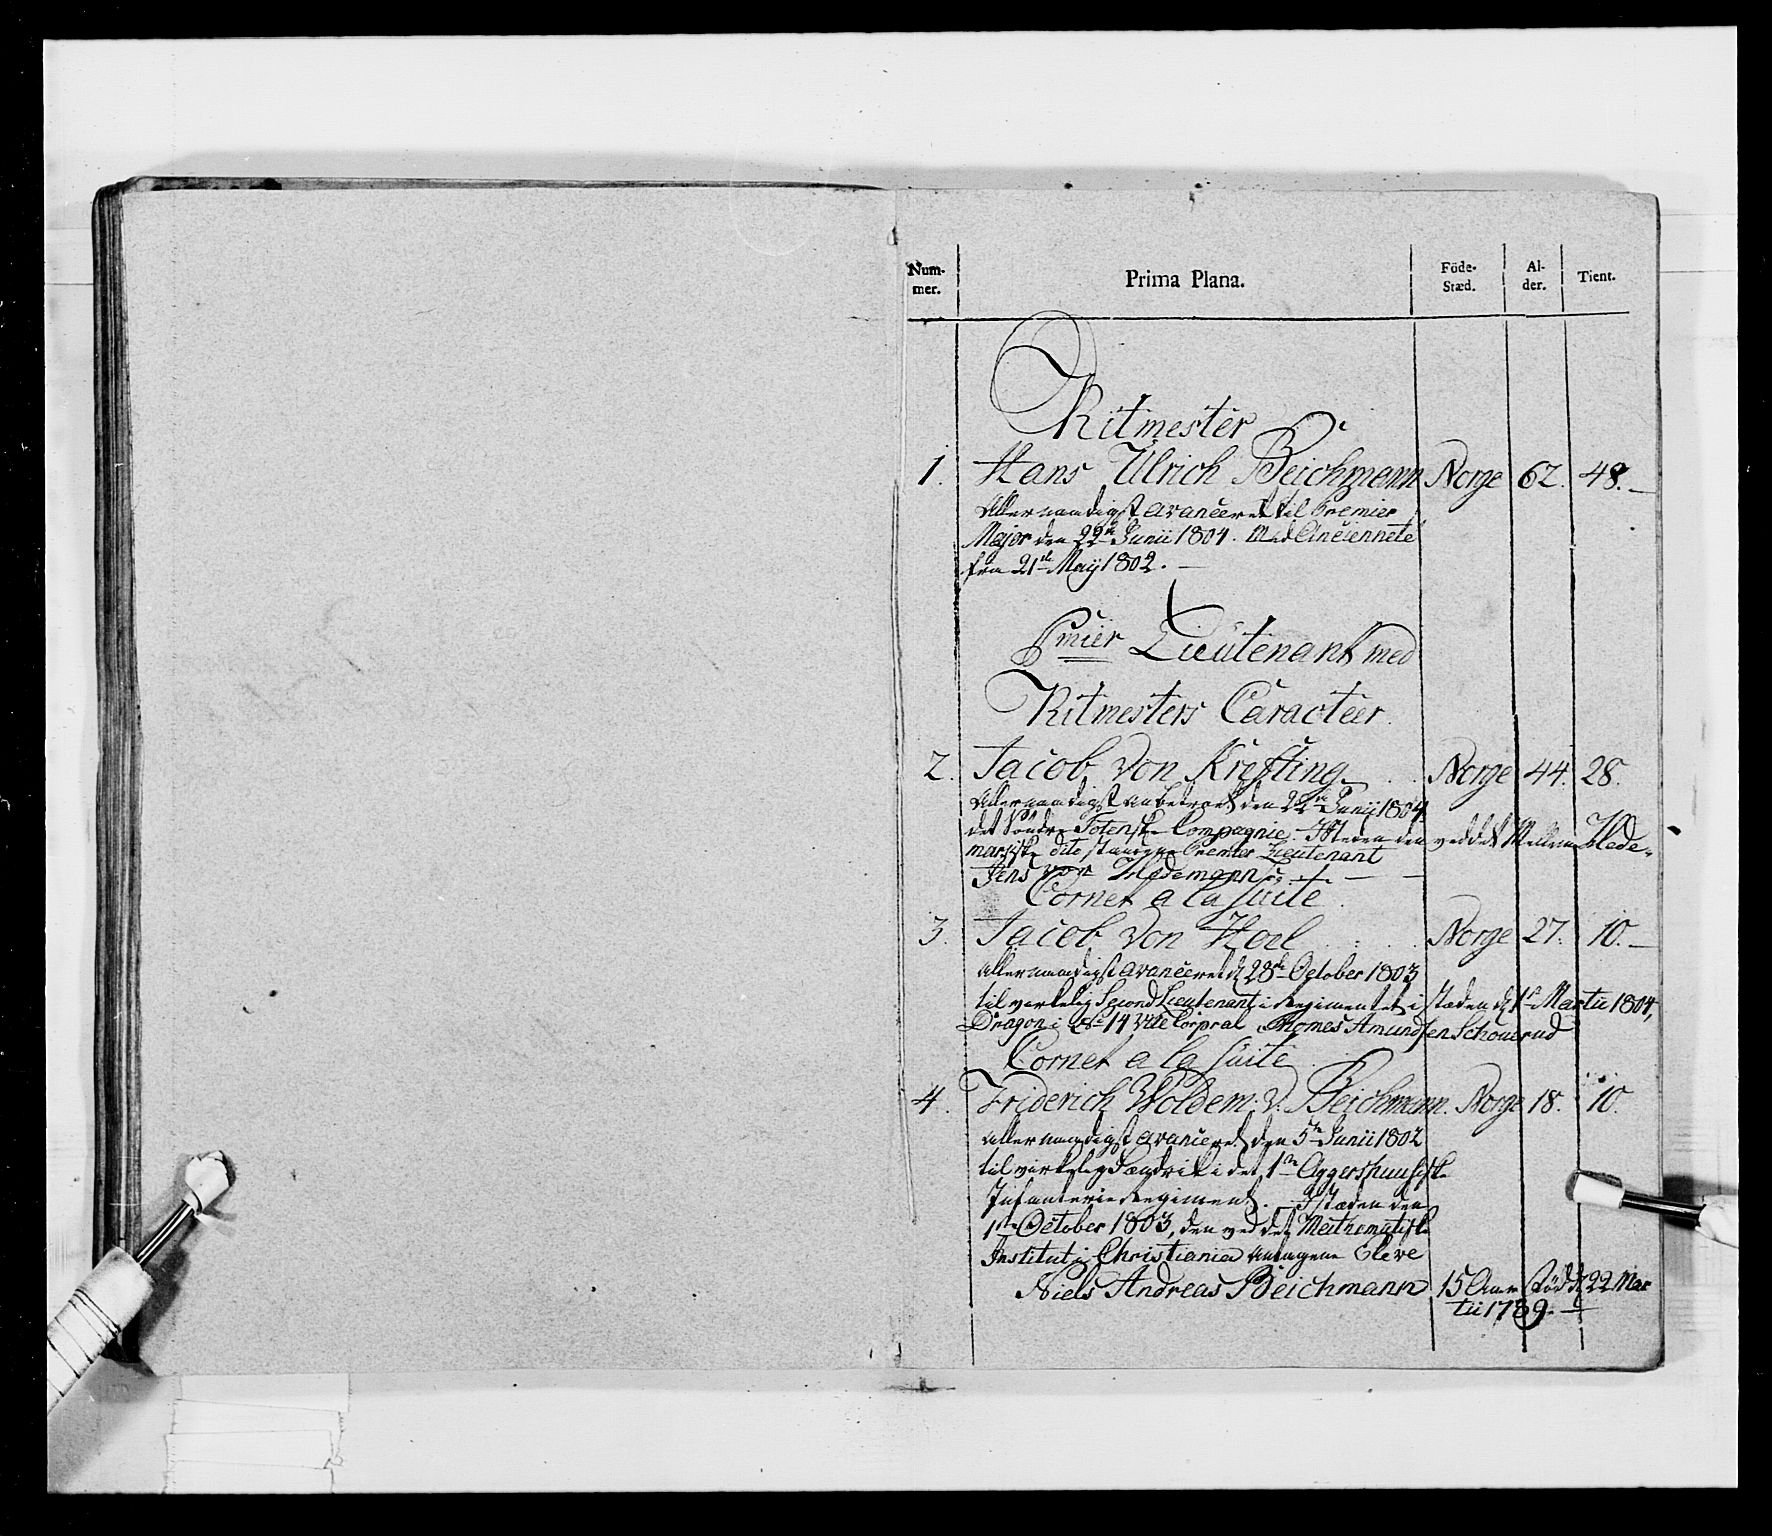 Num-
mer.
Prima Plana.
Föde-
Stæd.
Al-
der.
Tient.
Ritmester
1. Hans Ulrich Beichmann Norge 62. 48.
Allernaadigst avanceret til Premier
Major den 22de Junii 1804. med Anciennete
fra 21de Maÿ 1802.
Pmier Lieutenant med
Ritmesters Caracteer.
2. Jacob von Krefting Norge 44. 28.
Allernaadigst anbetroet den 22de Junÿ 1804
det Söndre Totenske Compagnie. I Steden den ved det Mellem Hede-
marske dito staaende Premier Lieutenant
Jens von
Cornet a la Suite.
3. Jacob von Hoel Norge 27. 10.
Allernaadigst avanceret d 28de October 1803
til virkelig Second Lieutenant i Regimentet i stæden d 1te Martii 1804,
Dragon i No 14 Vice Corpral Thomes Amundsen Schouerud
Cornet a la Suite
4. Friderich Woldem: v. Beichmann. Norge 18. 10.
Allernaadigst avanceret den 5te Junii 1802
til virkelig Fændrik i det 1te Aggershuusiske
Infanterie Regiment. I stæden den
1te October 1803, den ved det Mathematiske
Institut i Christiania antagene Eleve
Niels Andreas Beichmann 15 Aar Född d 22 Mar
tii 1789.